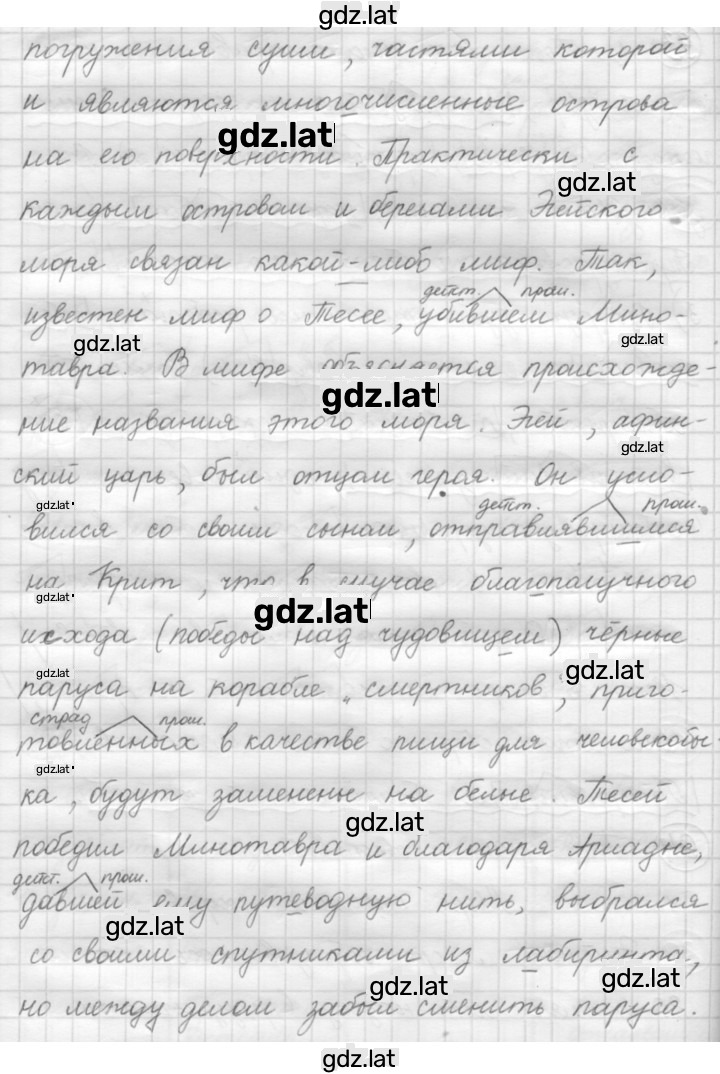 gdz.lat
погружения суши, частями которой
и являются многочисленные острова
gdz.lat
на его поверхности. Практически с
gdz.lat
каждым островом и берегами Эгейского
моря связан какой-либо миф. Так,
действ. прош.
известен миф о Тесее, убившем Мино-
gdz.lat gdz.lat
тавра. В мифе объясняется происхожде-
gdz.lat
ние названия этого моря. Эгей, афин-
gdz.lat
ский царь, был отцом героя. Он усло-
gdz.lat действ. прош.
вился со своим сыном, отправлявшимся
на Крит, что в случае благополучного
gdz.lat gdz.lat
исхода (победы над чудовищем) чёрные
gdz.lat gdz.lat
паруса на корабле „смертников", приго-
страд прош.
товленных в качестве пищи для человекобы-
gdz.lat
ка, будут заменены на белые. Тесей
gdz.lat
победил Минотавра и благодаря Ариадне,
действ. прош.
давшей ему путеводную нить, выбрался
gdz.lat
со своими спутниками из лабиринта,
gdz.lat gdz.lat
но между делом забыл сменить паруса.
gdz.lat